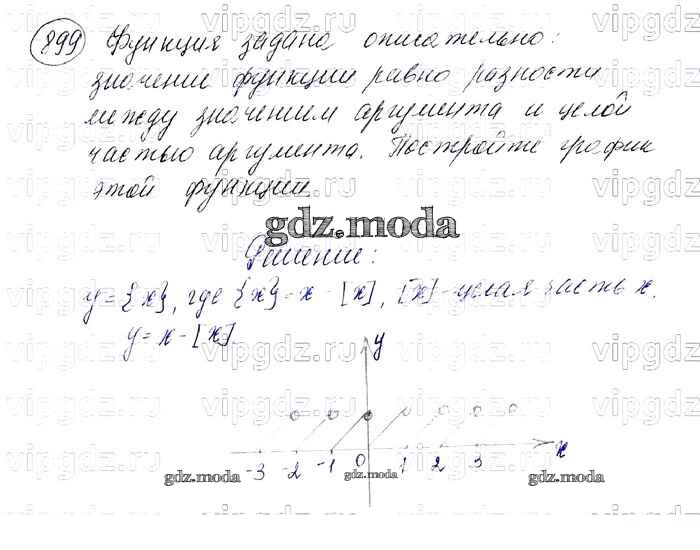 899 Функция задана описательно:
значение функции равно разности
между значением аргумента и целой
частью аргумента. Постройте график
этой функции.
gdz.moda
Решение:
y = {x}, где {x} = x - [x], [x] - целая часть x.
y = x - [x].
y
-3 -2 -1 0 1 2 3 x
gdz.moda gdz.moda gdz.moda
vipgdz.ru